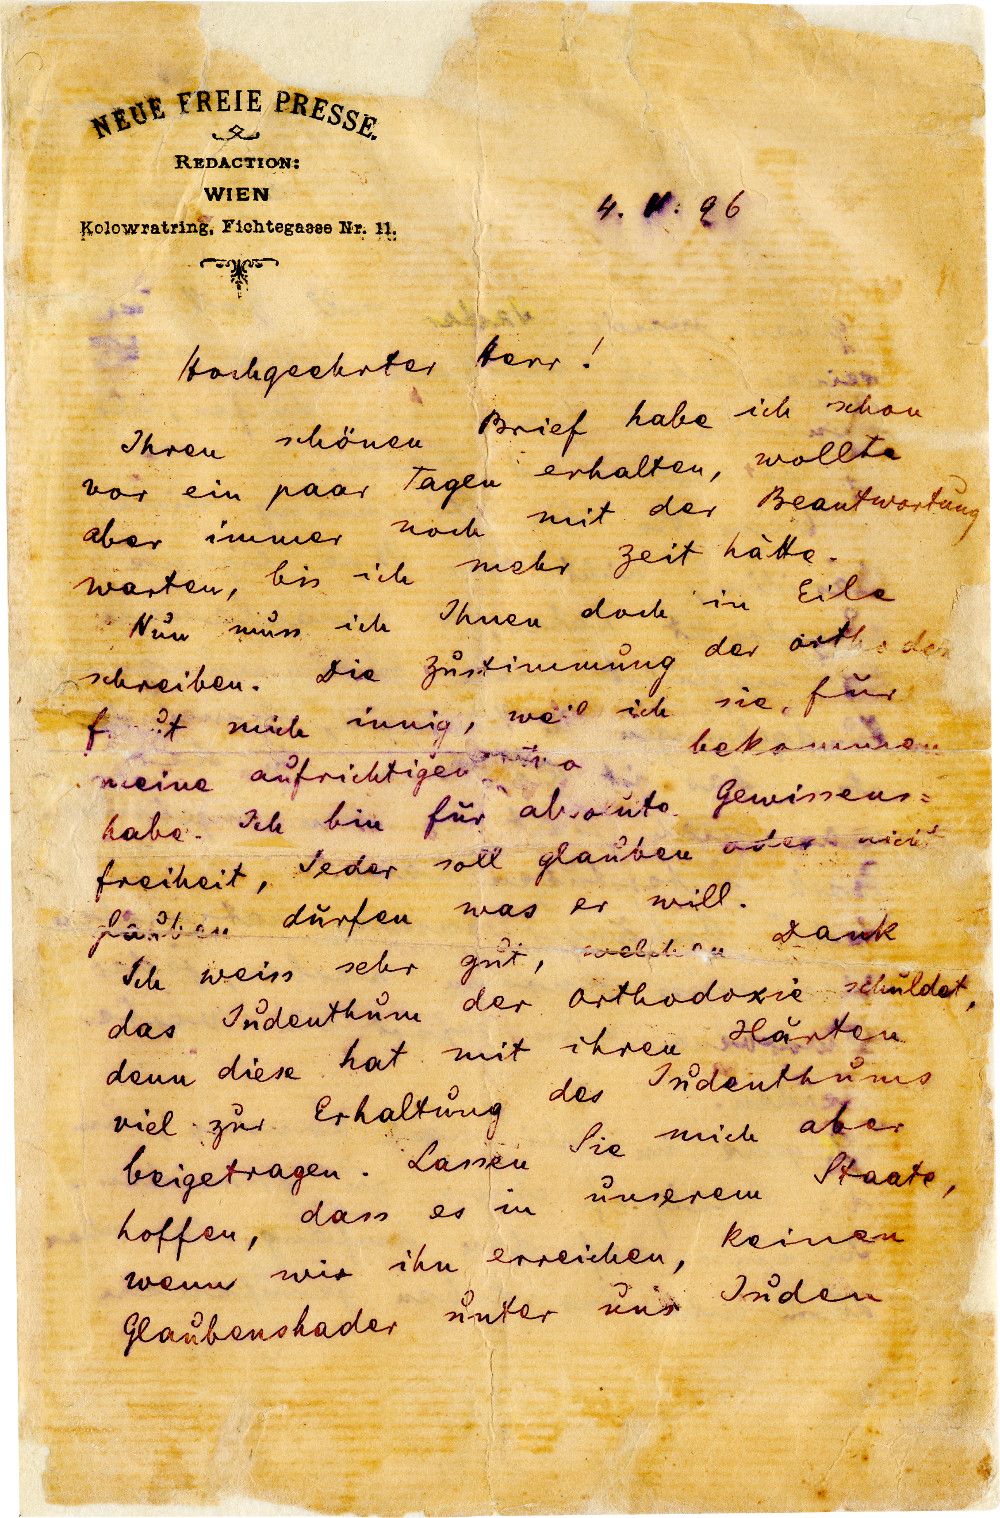 NEUE FREIE PRESSE.
REDACTION:
WIEN
Kolowratring, Fichtegasse Nr. 11.
4. 96
Hochgeehrter Herr!
Ihren schönen Brief habe ich schon
vor ein paar Tagen erhalten, wollte
aber immer noch mit der Beantwortung
warten, bis ich mehr Zeit hätte.
Nun muss ich Ihnen doch in Eile
schreiben. Die Zustimmung der
mich innig, weil ich sie für
meine aufrichtigen bekommen
habe. Ich bin für absolute Gewissens=
freiheit, Jeder soll glauben oder nicht
glauben dürfen was er will.
Ich weiss sehr gut, welchen Dank
das Judenthum der Orthodoxie schuldet,
denn diese hat mit ihren Härten
viel zur Erhaltung des Judenthums
beigetragen. Lassen Sie mich aber
hoffen, dass es in unserem Staate,
wenn wir ihn erreichen, keinen
Glaubenshader unter uns Juden